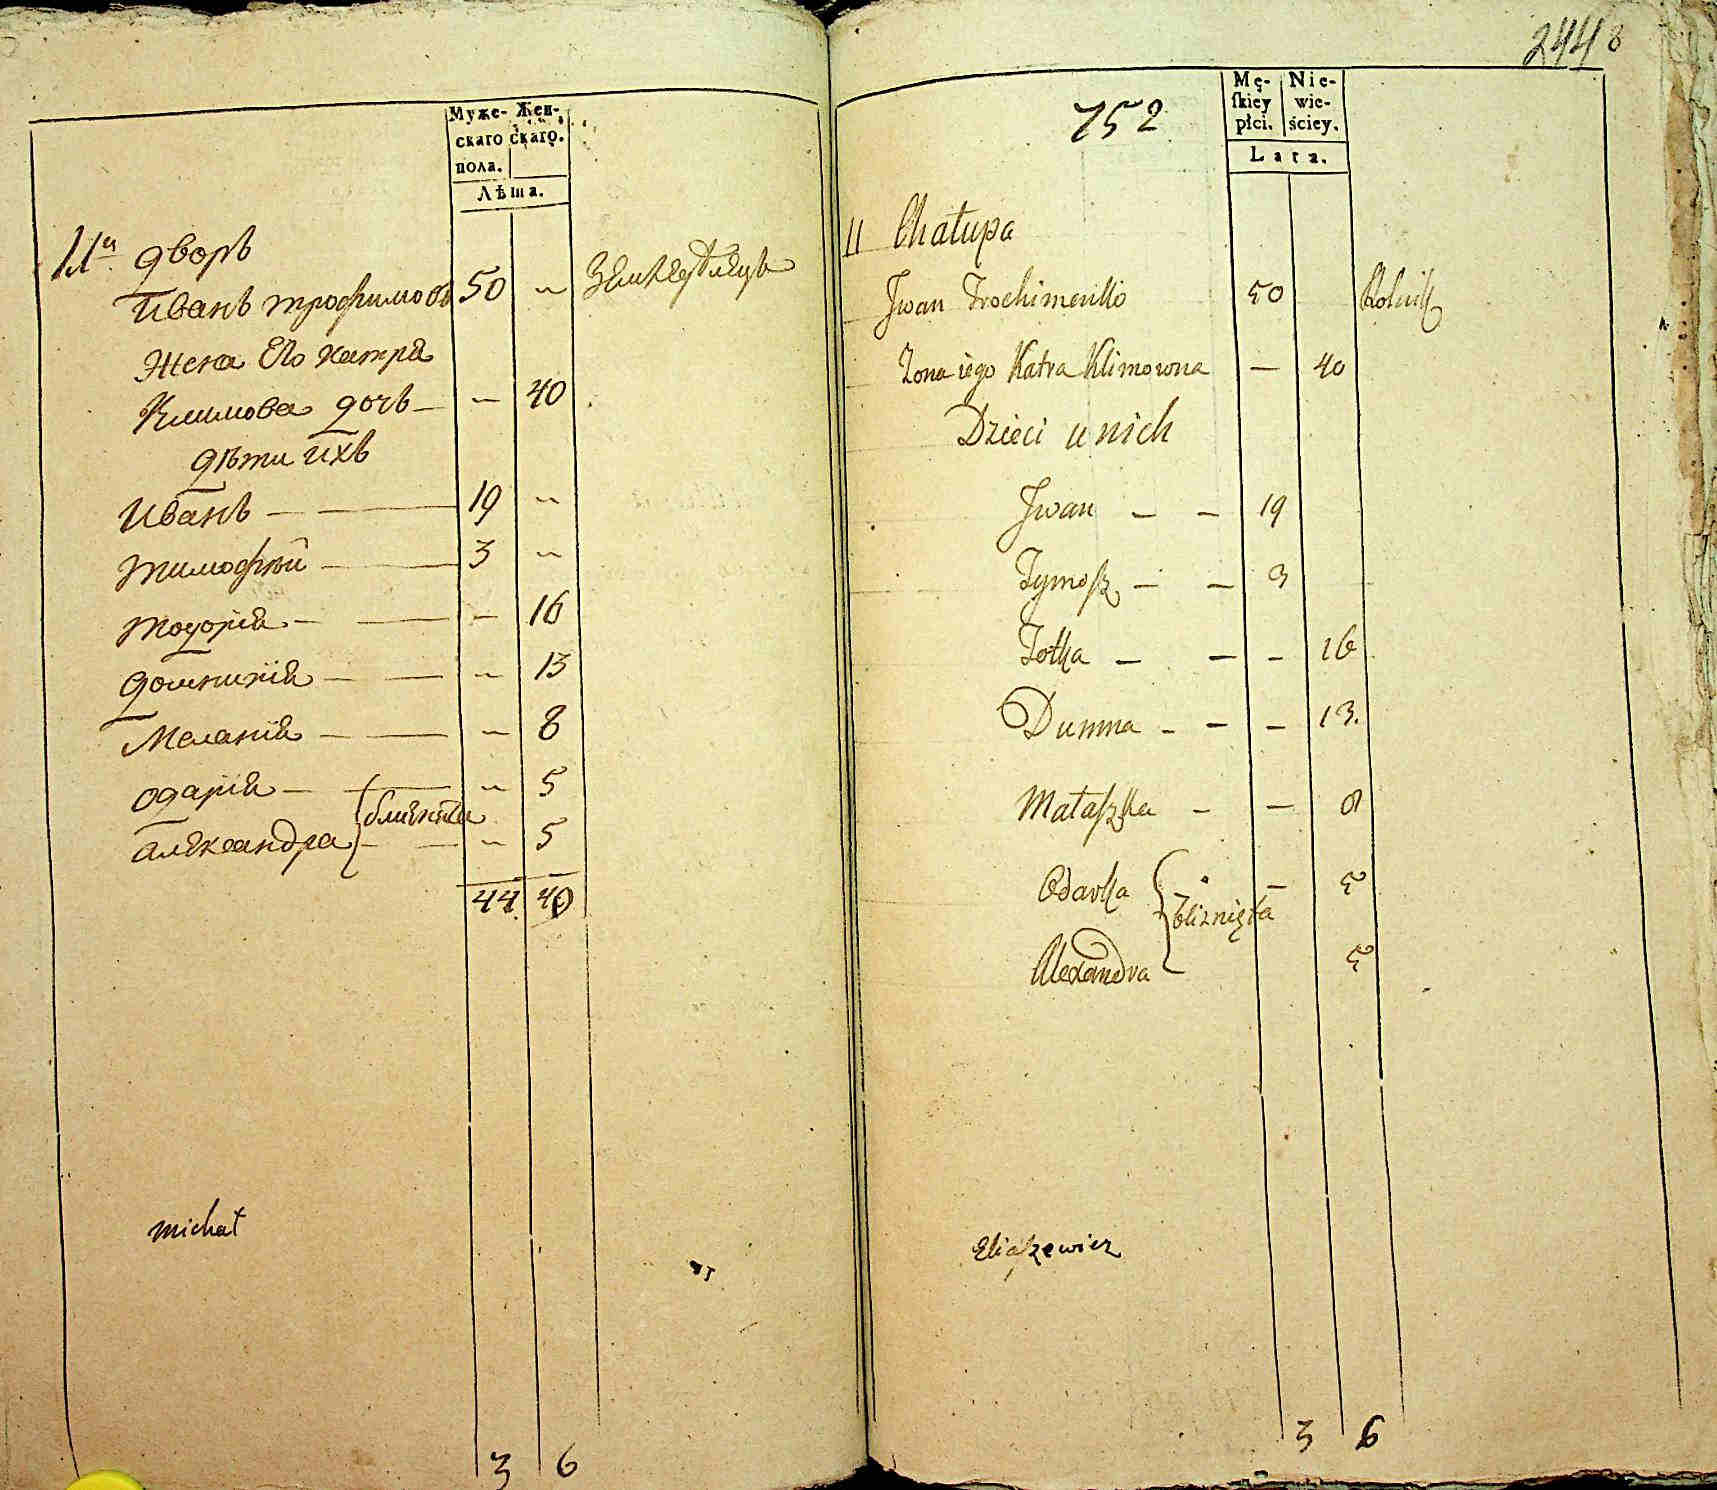 Муже- Жен-
скаго скаго.
пола.
Лѣта.
11й дворъ
Иванъ трофимовъ 50 " Земледѣлецъ
Жена Его катря
Климова дочь — " 40
дѣти ихъ
Иванъ — — 19 "
тимофѣй — — 3 "
тодорія — — " 16
домникія — — " 13
Меланія — — " 8
одарія — — " 5
близнята
александра — — " 5
44 40
michał
3 6
244 8
752
Mę- Nie-
ſkiey wie-
płci. ściey.
Lata.
11 Chałupa
Jwan Trochimenko 50 Rolnik
Zona iego Katra Klimowna — 40
Dzieci u nich
Jwan — — 19
Tymoſz — — 3
Totka — — — 16
Dumna — — — 13.
Małaſzka — — 8
Odarka — — 5
bliznięta
Alexandra 5
Eliaſzewicz
3 6